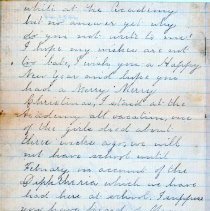 while at the Academy
but no answer yet why
do you not write to me?
I hope my wishes are not
to late, I wish you a Happy
New Year and hope you
had a Merry Merry
Christmas, I staid at the
Academy all vacation, one
of the girls died about
three weeks ago, we will
not have school until
February on account of the
Diphtherria which we have
had here at school. I suppose
you have heard of the